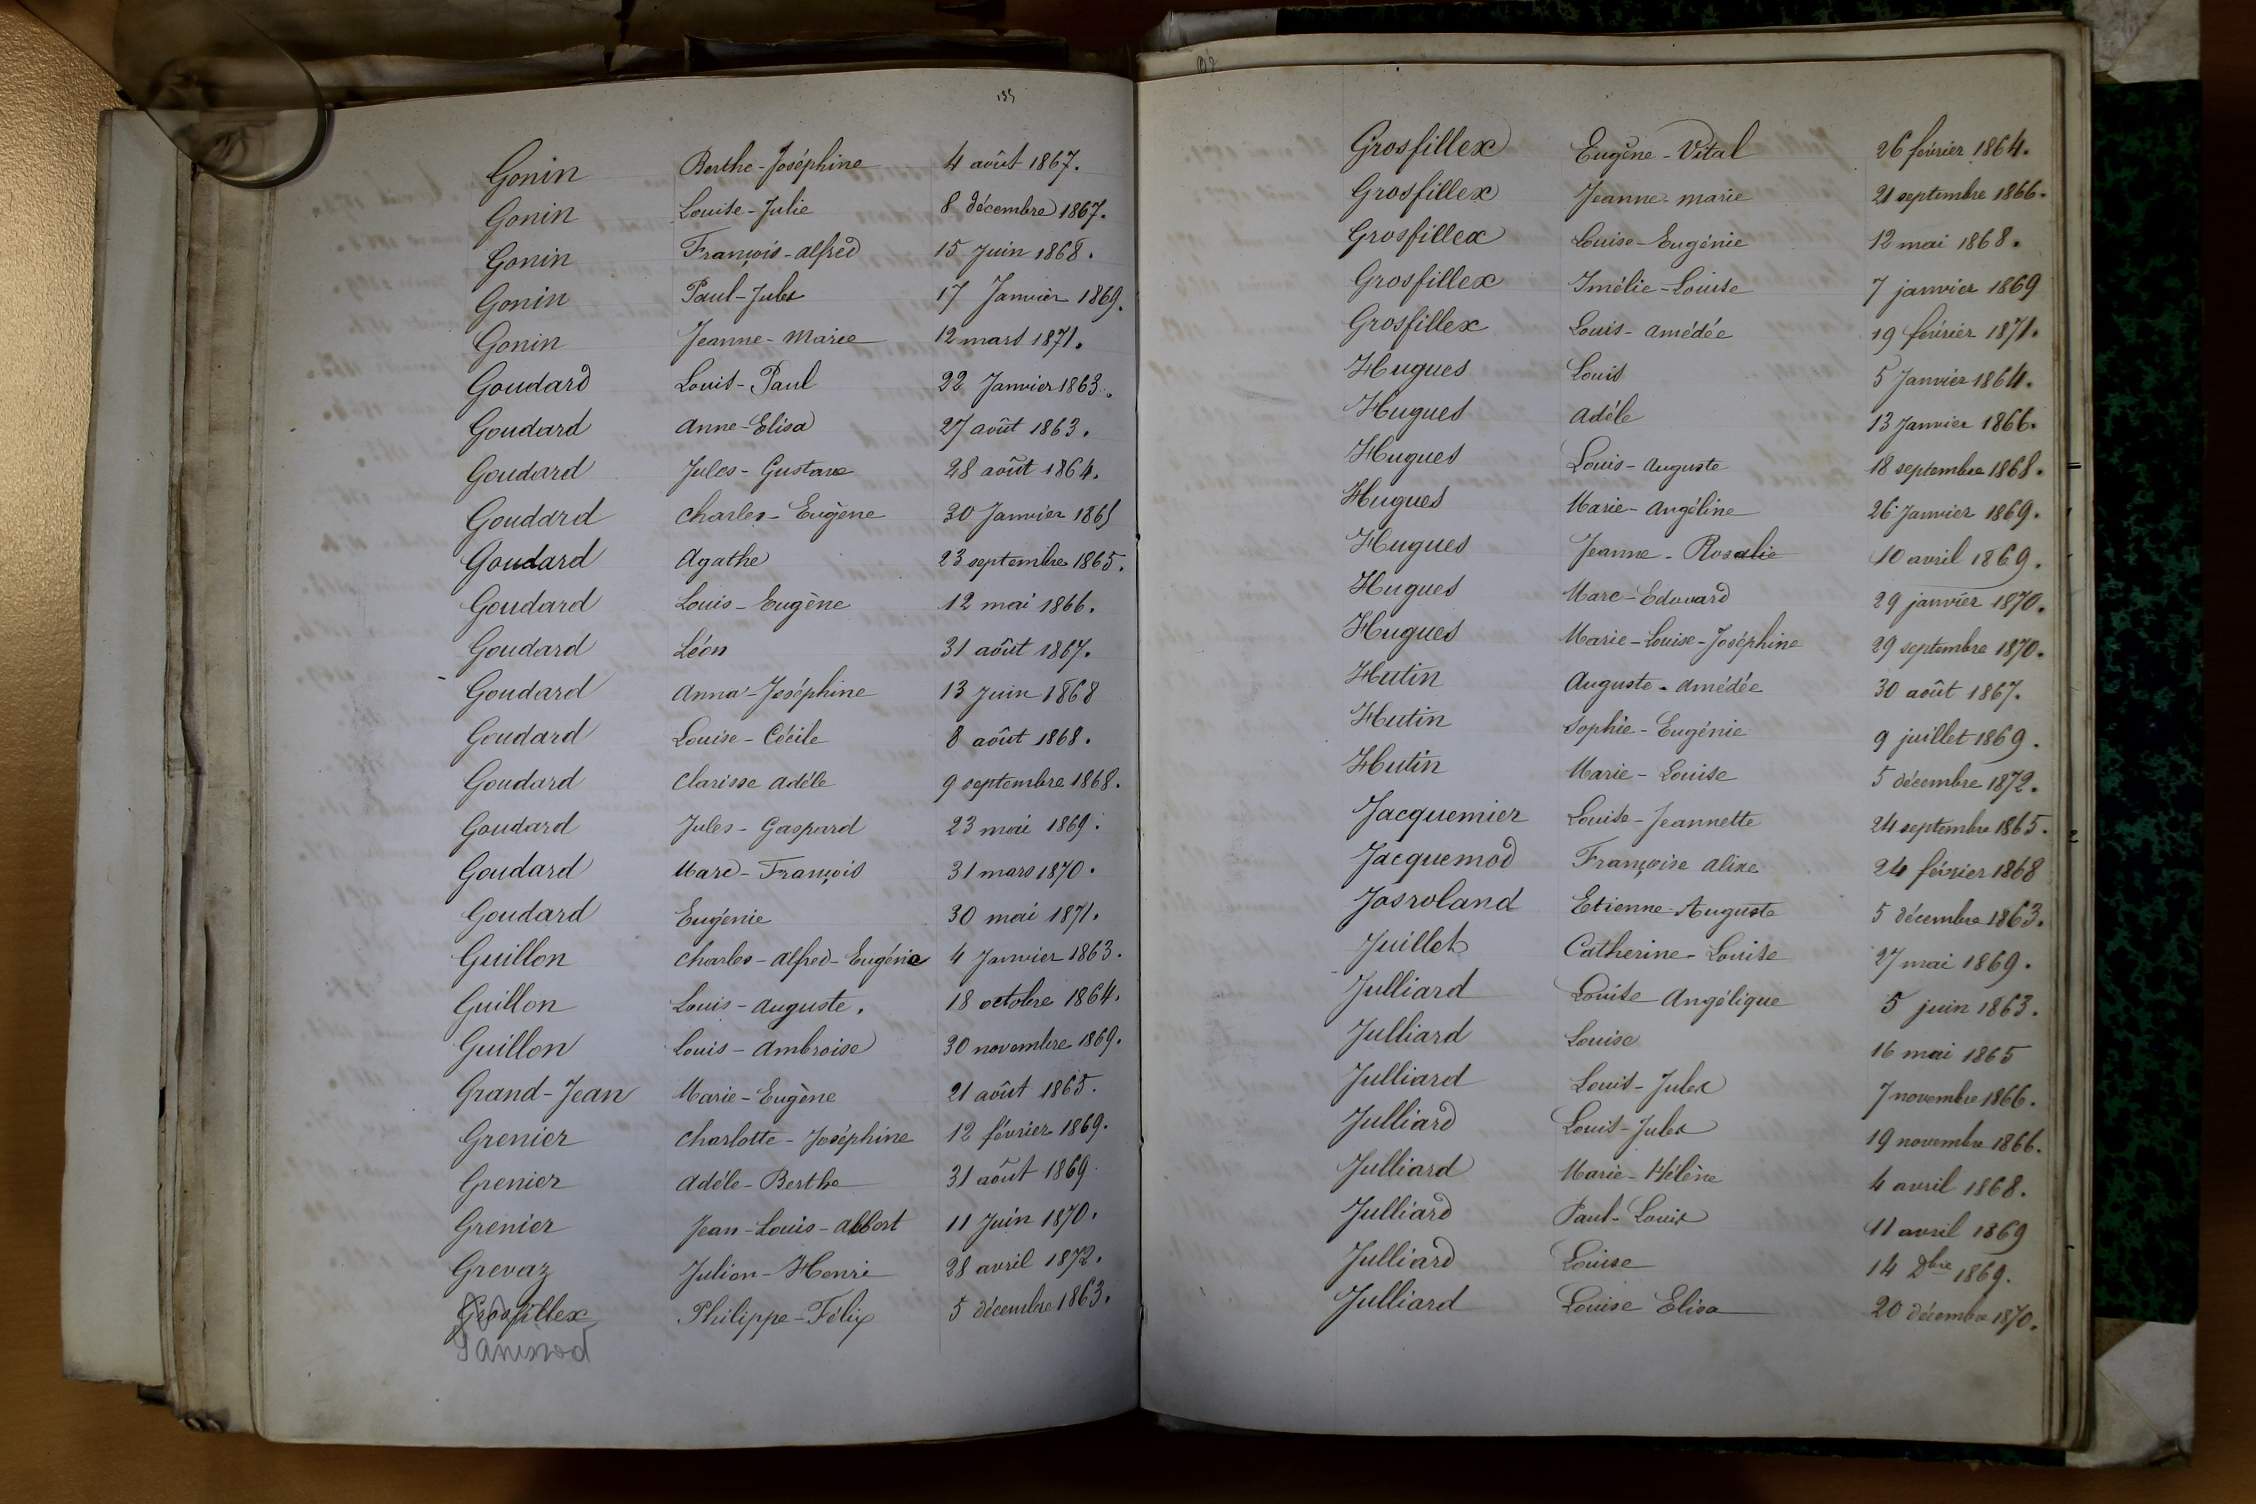 Gonin Berthe-Joséphine 4 août 1867.
Gonin Louise-Julie 8 décembre 1867.
Gonin François-alfred 15 Juin 1868.
Gonin Paul-Jules 17 Janvier 1869.
Gonin Jeanne-Marie 12 mars 1871.
Goudard Louis-Paul 22 Janvier 1863.
Goudard Anne-Elisa 27 août 1863.
Goudard Jules-Gustave 28 août 1864.
Goudard Charles-Eugène 30 Janvier 1865
Goudard Agathe 23 septembre 1865.
Goudard Louis-Eugène 12 mai 1866.
Goudard Léon 31 août 1867.
Goudard Anna-Joséphine 13 Juin 1868
Goudard Louise-Cécile 8 août 1868.
Goudard Clarisse Adèle 9 septembre 1868.
Goudard Jules-Gaspard 23 mai 1869.
Goudard Marc-François 31 mars 1870.
Goudard Eugénie 30 mai 1871.
Guillon Charles-Alfred-Eugénie 4 Janvier 1863.
Guillon Louis-Auguste. 18 octobre 1864.
Guillon Louis-Ambroise 30 novembre 1869.
Grand-Jean Marie-Eugène 21 août 1865.
Grenier Charlotte-Joséphine 12 février 1869.
Grenier Adèle-Berthe 31 août 1869.
Grenier Jean-Louis-Albert 11 Juin 1870.
Grevaz Julien-Henri 28 avril 1872.
Grosfillex Philippe-Félix 5 décembre 1863.
Grosfillex Eugène-Vital 26 février 1864.
Grosfillex Jeanne-marie 21 septembre 1866.
Grosfillex Louise-Eugénie 12 mai 1868.
Grosfillex Imélie-Louise 7 janvier 1869
Grosfillex Louis-Amédée 19 février 1871.
Hugues Louis 5 Janvier 1864.
Hugues Adèle 13 Janvier 1866.
Hugues Louis-Auguste 18 septembre 1868.
Hugues Marie-Angéline 26 Janvier 1869.
Hugues Jeanne-Rosalie 10 avril 1869.
Hugues Marc-Edouard 29 janvier 1870.
Hugues Marie-Louise-Joséphine 29 septembre 1870.
Hutin Auguste-Amédée 30 août 1867.
Hutin Sophie-Eugénie 9 juillet 1869.
Hutin Marie-Louise 5 décembre 1872.
Jacquemier Louise-Jeannette 24 septembre 1865.
Jacquemod Françoise Aline 24 février 1868
Josroland Etienne-Auguste 5 décembre 1863.
Juillet Catherine-Louise 27 mai 1869.
Julliard Louise Angélique 5 juin 1863.
Julliard Louise 16 mai 1865
Julliard Louis-Jules 7 novembre 1866.
Julliard Louis-Jules 19 novembre 1866.
Julliard Marie-Hélène 4 avril 1868.
Julliard Paul-Louis 11 avril 1869
Julliard Louise 14 Xbre 1869.
Julliard Louise Elisa 20 décembre 1870.